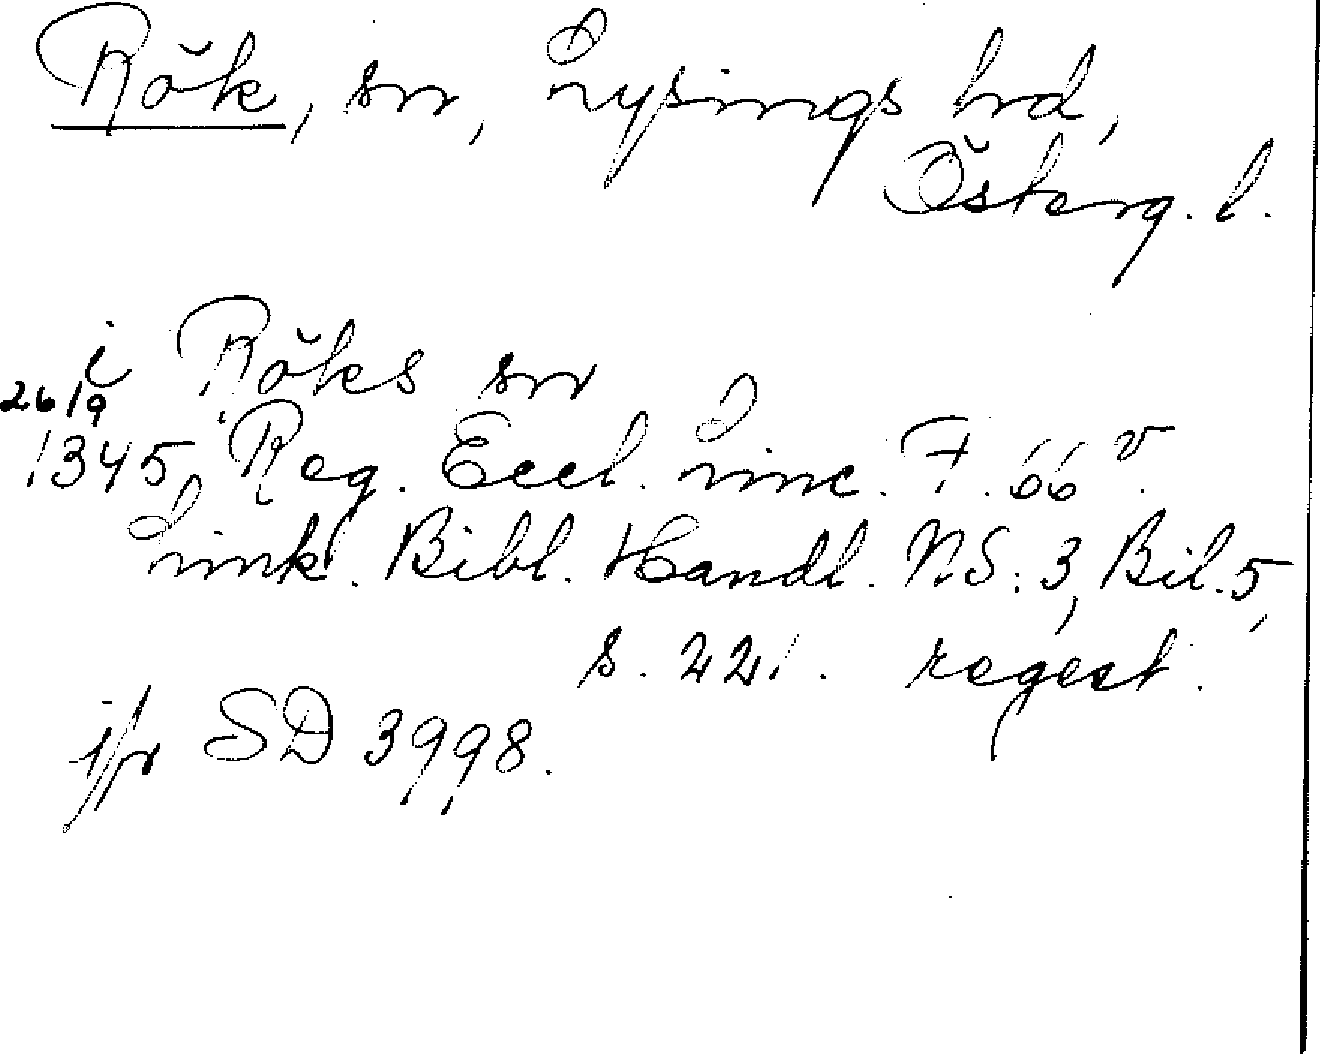 Rök, sn, Lysings hd,
Österg. l.
i Röks sn
26/9
1345, Reg. Eccl. Linc. F. 66 v.
Link. Bibl. Handl. N.S. 3, Bil. 5,
s. 221. regest.
jfr SD 3998.